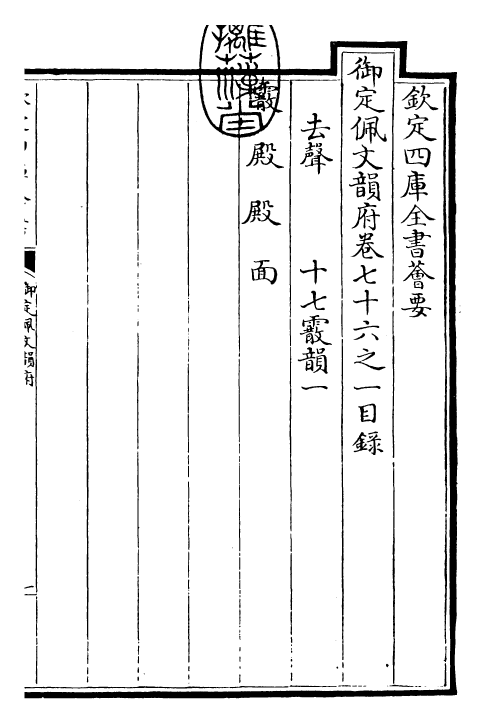 欽定四庫全書薈要
御定佩文韻府卷七十六之一目錄
去聲　十七霰韻一
霰殿殿面
御定佩文韻府